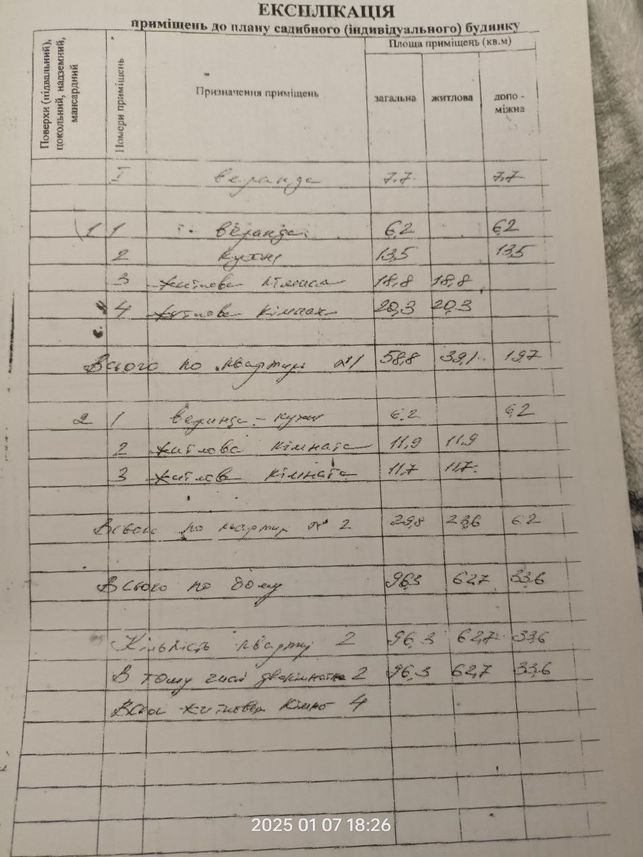 ЕКСПЛІКАЦІЯ
приміщень до плану садибного (індивідуального) будинку
Поверхи (підвальний), цокольний, надземний, мансардний
Номери приміщень
Призначення приміщень
Площа приміщень (кв.м)
загальна житлова допо - міжна
I веранда 7.7 7.7
1 1 веранда 6,2 6,2
2 кухня 13,5 13,5
3 житлова кімната 18,8 18,8
4 житлова кімнат 20,3 20,3
Всього по квартирі №1 58,8 39,1 19,7
2 1 веранда - кухня 6.2 6.2
2 житлова кімната 11,9 11,9
3 житлова кімната 11,7 11,7
Всього по квартирі № 2 29,8 23,6 6.2
Всього по дому 96,3 62,7 33,6
Кількість квартир 2 96,3 62,7 33,6
В тому числі двокімнатн 2 96,3 62,7 33,6
Всього житлових кімнат 4
2025 01 07 18:26